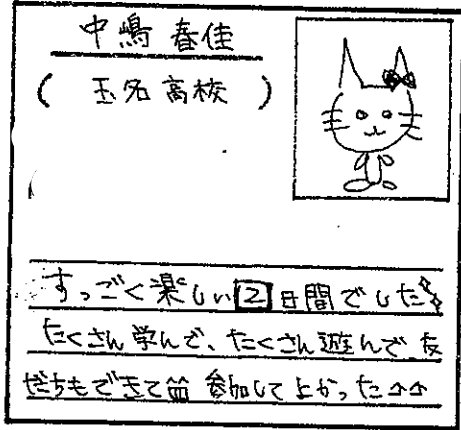 中嶋 春佳
( 玉名高校 )
すっごく楽しい2日間でした
たくさん学んで、たくさん遊んで、友
だちもできて 参加してよかった